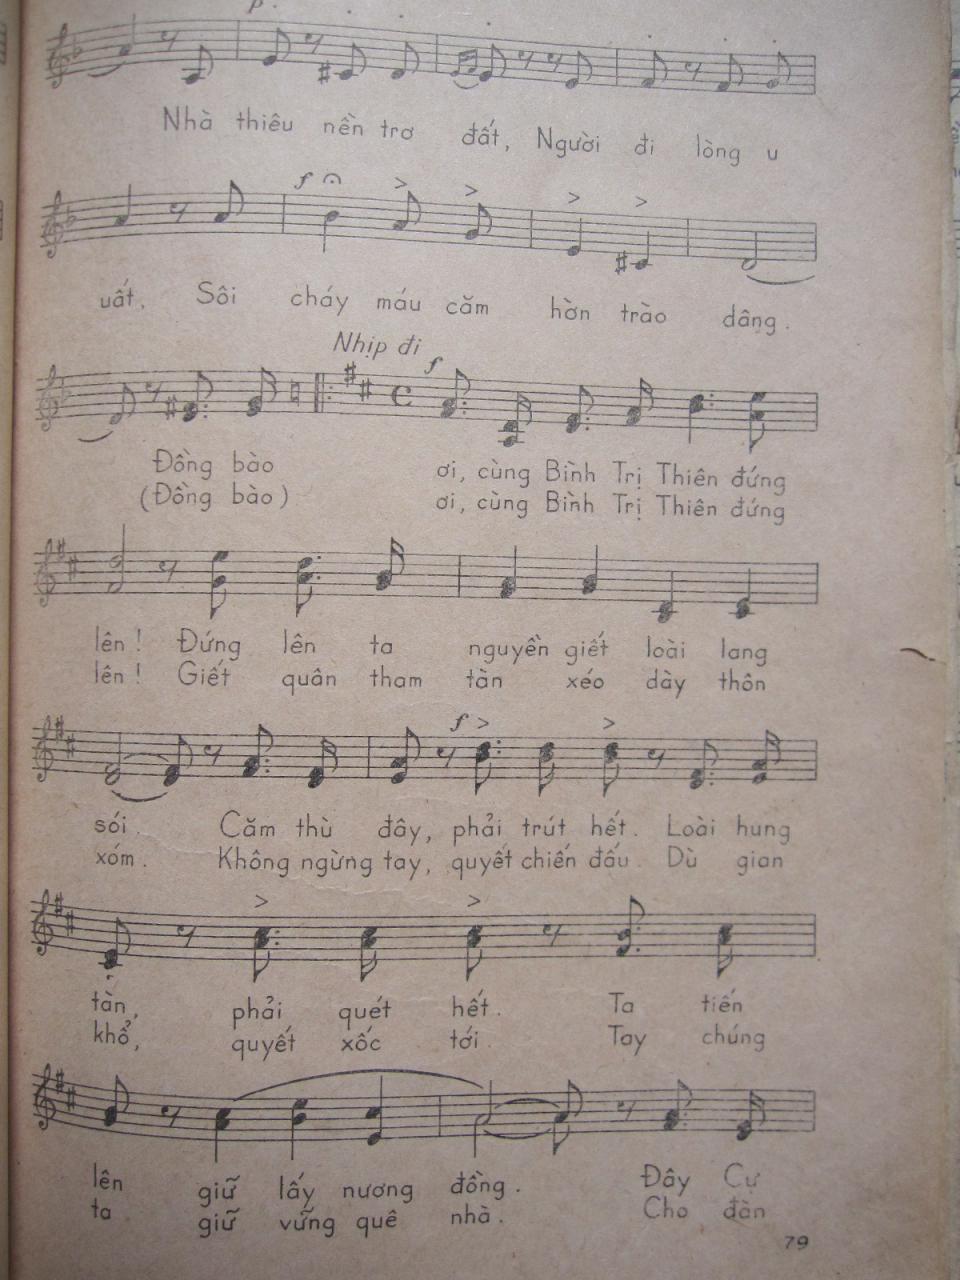 p.
Nhà thiêu nền trơ đất, Người đi lòng u
f
uất. Sôi cháy máu căm hờn trào dâng.
Nhịp đi
f
Đồng bào ơi, cùng Bình Trị Thiên đứng
(Đồng bào) ơi, cùng Bình Trị Thiên đứng
lên! Đứng lên ta nguyền giết loài lang
lên! Giết quân tham tàn xéo dày thôn
f
sói. Căm thù đây, phải trút hết. Loài hung
xóm. Không ngừng tay, quyết chiến đấu. Dù gian
tàn, phải quét hết. Ta tiến
khổ, quyết xốc tới. Tay chúng
lên giữ lấy nương đồng. Đây Cự
ta giữ vững quê nhà. Cho đàn
79